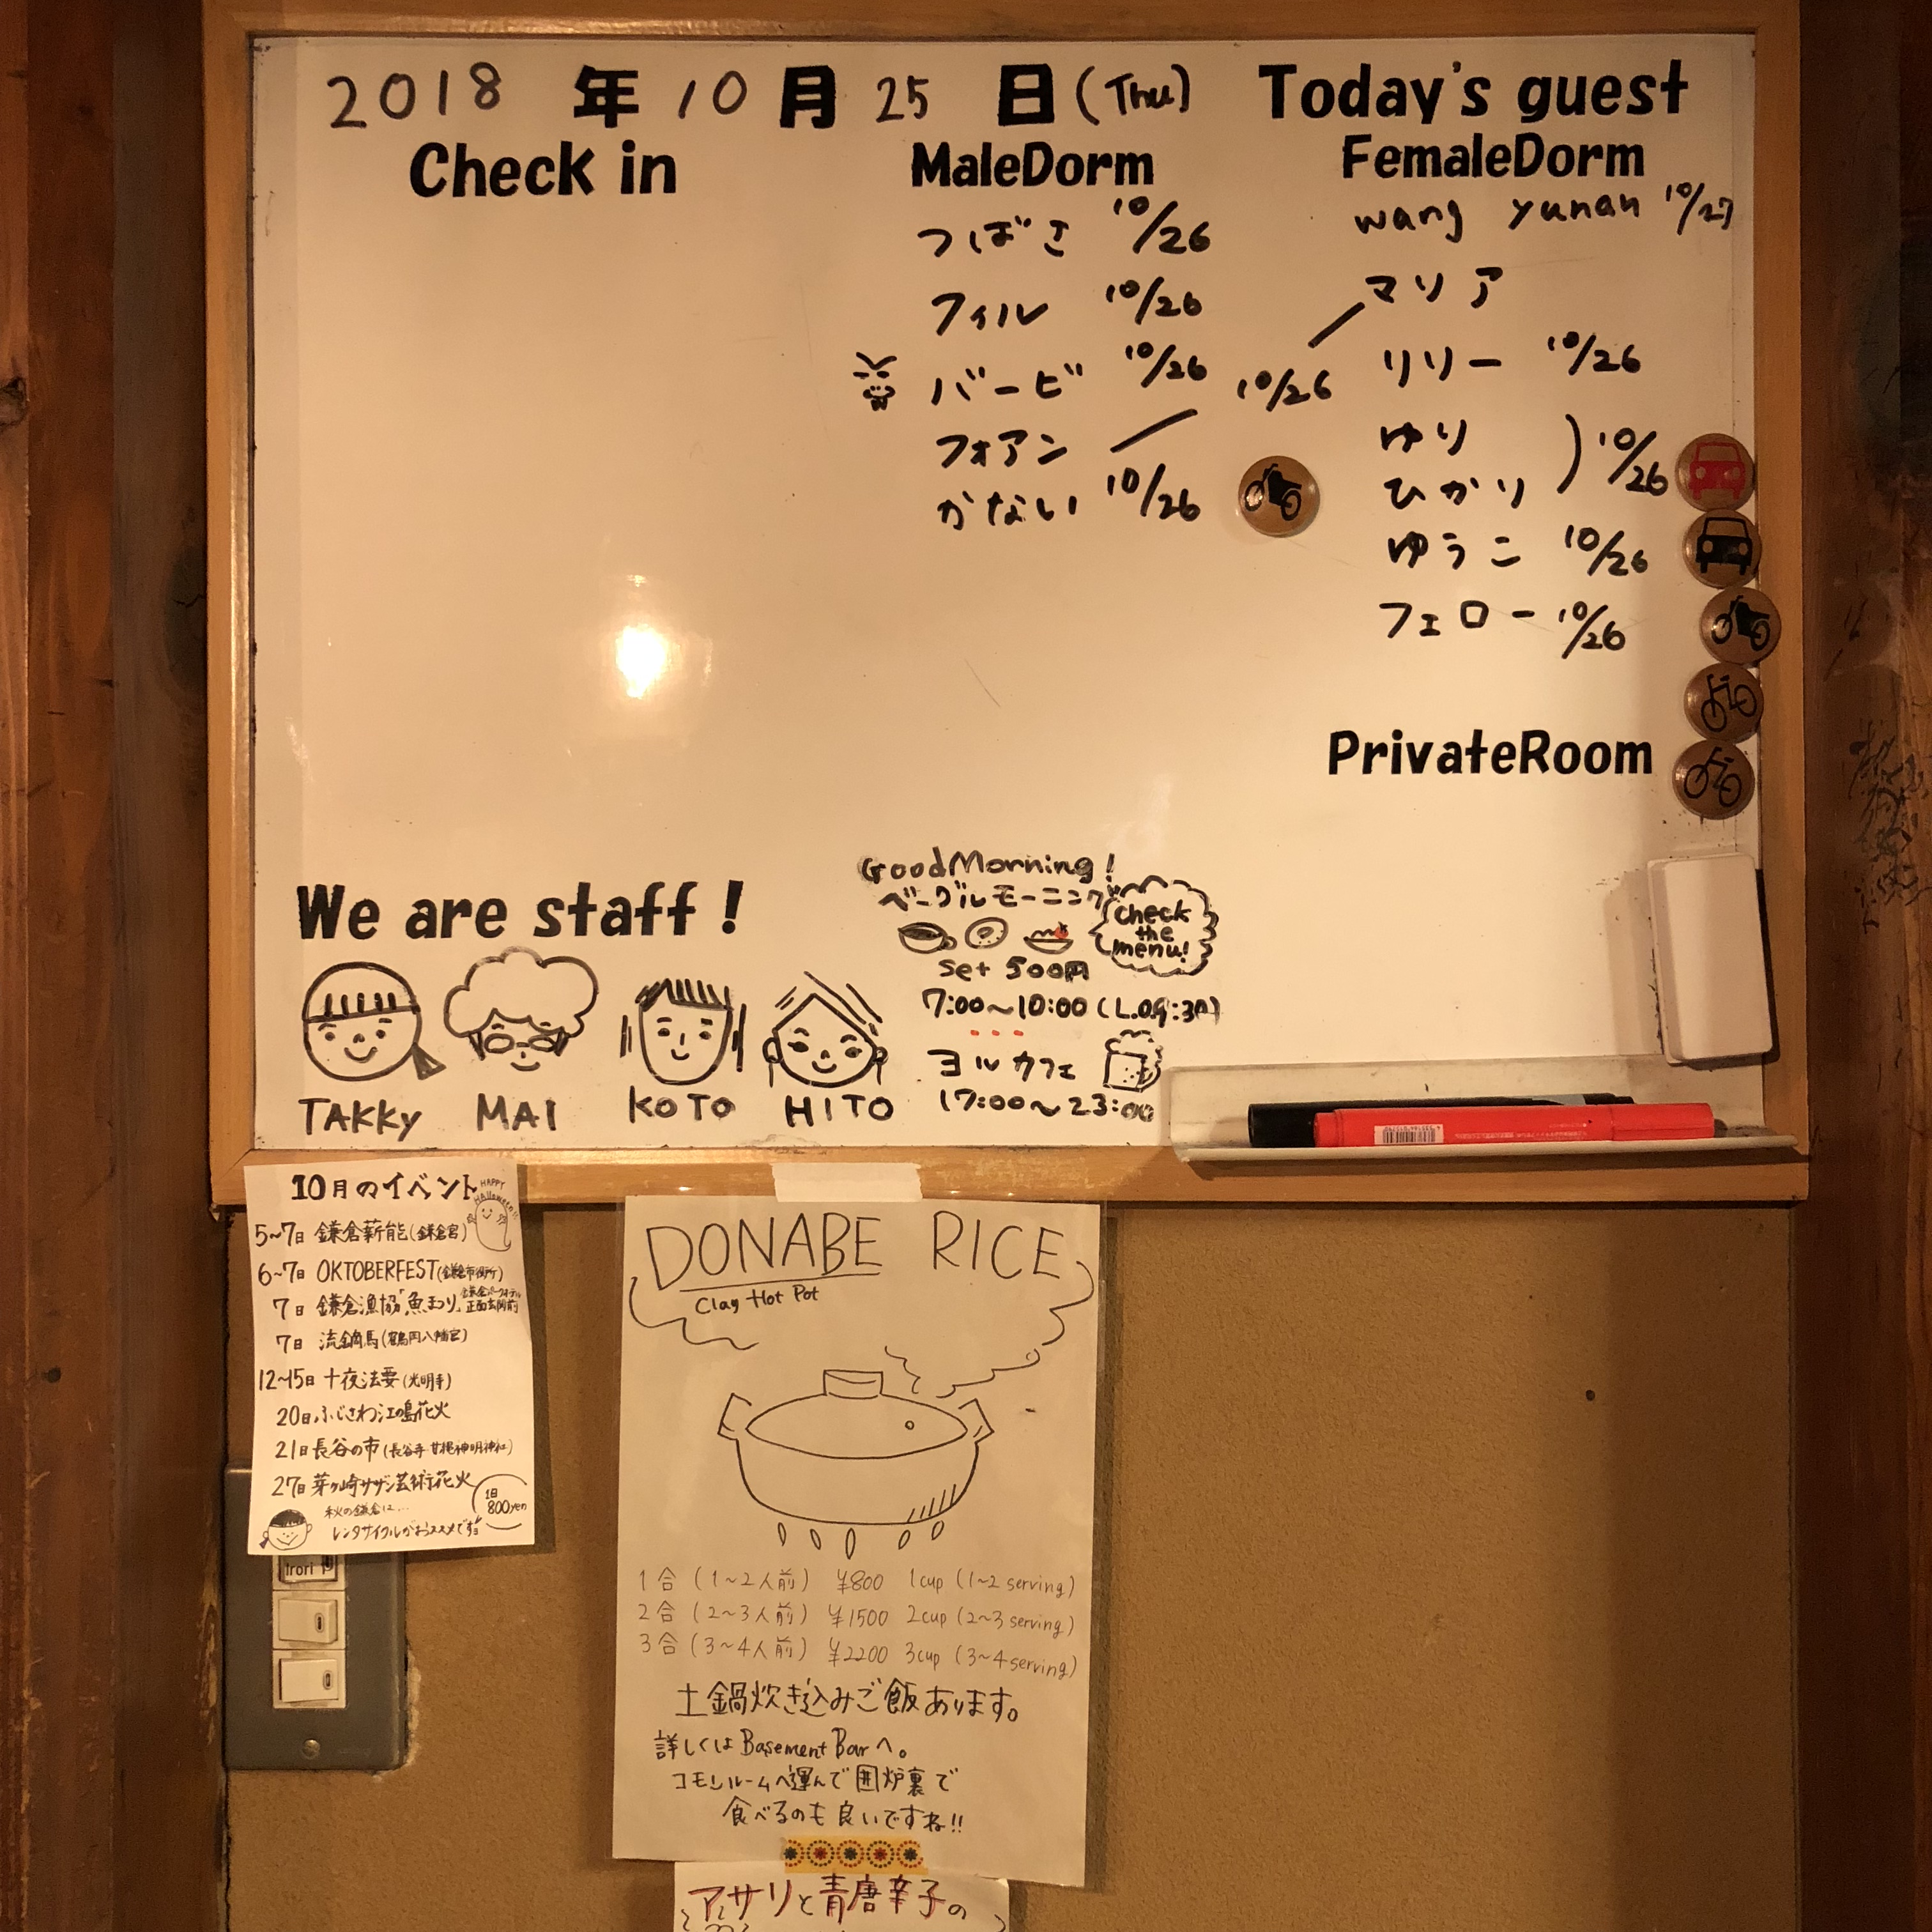 2018 年 10 月 25 日 (Thu) Today's guest
Check in
MaleDorm
つばさ 10/26
フィル 10/26
バービ 10/26
フォアン
かない 10/26
10/26
FemaleDorm
wang yunan 10/27
マリア
リリー 10/26
ゆり
ひかり
10/26
ゆうこ 10/26
フェロー 10/26
PrivateRoom
We are staff!
TAKKy MAI KOTO HITO
GoodMorning!
ベーグルモーニング
check
the
menu!
set 500円
7:00〜10:00 (L.O9:30)
ヨルカフェ
17:00〜23:00
10月のイベント
HAPPY
Halloween!!
5~7日 鎌倉薪能(鎌倉宮)
6~7日 OKTOBERFEST
7日 鎌倉漁協「魚まつり」
7日 流鏑馬(鶴岡八幡宮)
12~15日 十夜法要(光明寺)
20日 ふじさわ江の島花火
21日 長谷の市(長谷寺 甘縄神明神社)
27日 茅ヶ崎サザン芸術花火
秋の鎌倉は...
レンタサイクルがおススメです
1日
800yen
Irori
DONABE RICE
Clay Hot Pot
1合 (1~2人前) ¥800 1cup (1~2 serving)
2合 (2~3人前) ¥1500 2cup (2~3 serving)
3合 (3~4人前) ¥2200 3cup (3~4 serving)
土鍋炊き込みご飯あります。
詳しくは Basement Bar へ。
コモンルームへ運んで囲炉裏で
食べるのも良いですね!!
アサリと青唐辛子の